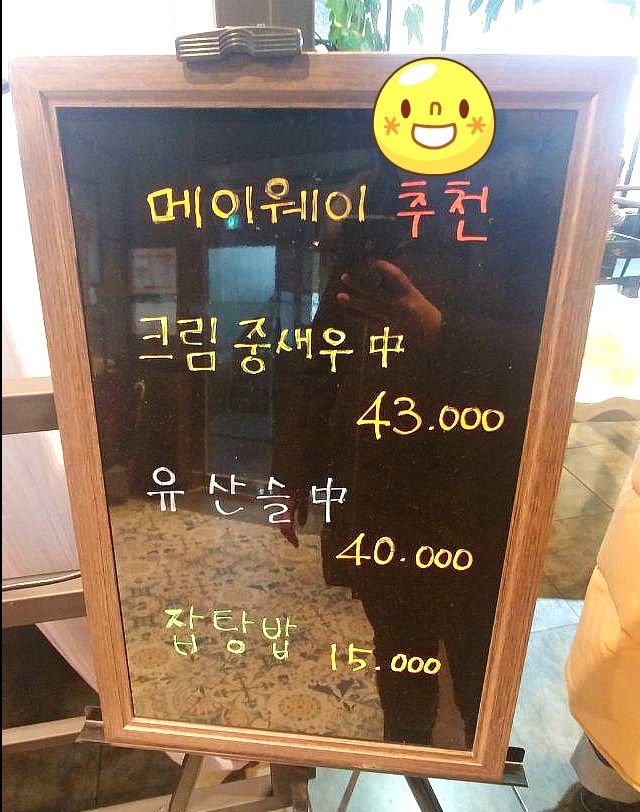 메이웨이 추천
크림 중새우 中
43.000
유산슬 中
40.000
잡탕밥 15.000